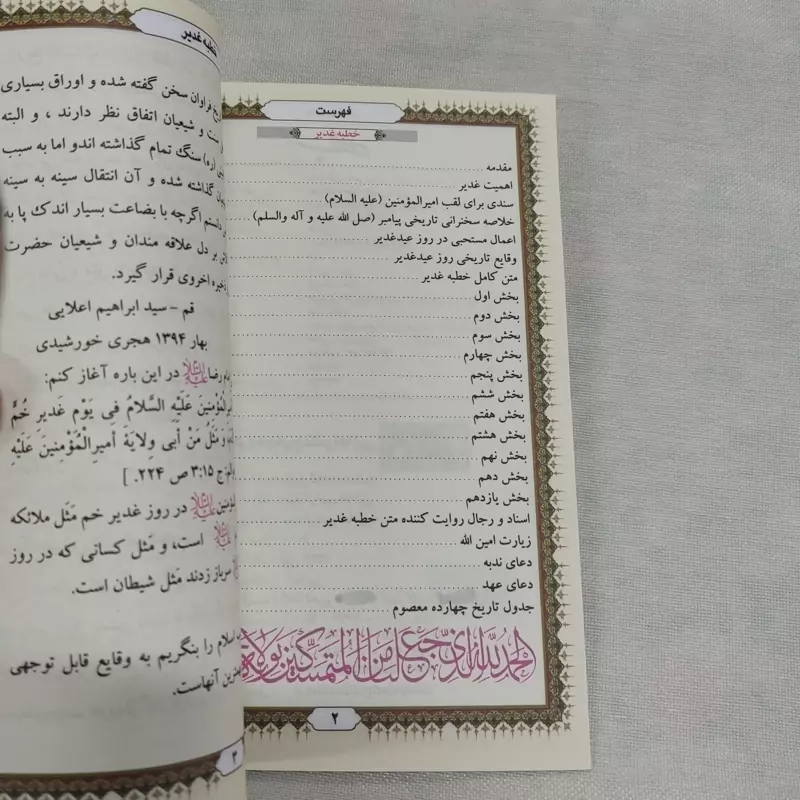 فهرست
خطبه غدیر
مقدمه
اهمیت غدیر
سندی برای لقب امیرالمؤمنین (علیه السلام)
خلاصه سخنرانی تاریخی پیامبر (صل الله علیه و آله والسلم)
اعمال مستحبی در روز عیدغدیر
وقایع تاریخی روز عیدغدیر
متن کامل خطبه غدیر
بخش اول
بخش دوم
بخش سوم
بخش چهارم
بخش پنجم
بخش ششم
بخش هفتم
بخش هشتم
بخش نهم
بخش دهم
بخش یازدهم
اسناد و رجال روایت کننده متن خطبه غدیر
زیارت امین الله
دعای ندبه
دعای عهد
جدول تاریخ چهارده معصوم
الحمدلله الذی جعلنا من المتمسکین بولایة
۲
خطبه غدیر
فراوان سخن گفته شده و اوراق بسیاری
و شیعیان اتفاق نظر دارند ، و البته
(ره) سنگ تمام گذاشته اندو اما به سبب
گذاشته شده و آن انتقال سینه به سینه
اگرچه با بضاعت بسیار اندک پا به
بر دل علاقه مندان و شیعیان حضرت
ذخیره اخروی قرار گیرد.
قم - سید ابراهیم اعلایی
بهار ۱۳۹۴ هجری خورشیدی
رضا در این باره آغاز کنم:
عَلَیْهِ السَّلامُ فِی یَوْمِ غَدیرِ خُمٍّ
وَ مَثَلُ مَنْ أبی وِلایَةَ أمیرِالْمُؤْمِنینَ عَلَیْهِ
۳:۱۵ ص ۲۲۴. ]
در روز غدیر خم مَثَل ملائکه
است، و مَثل کسانی که در روز
سرباز زدند مَثل شیطان است.
اسلام را بنگریم به وقایع قابل توجهی
آنهاست.
۳